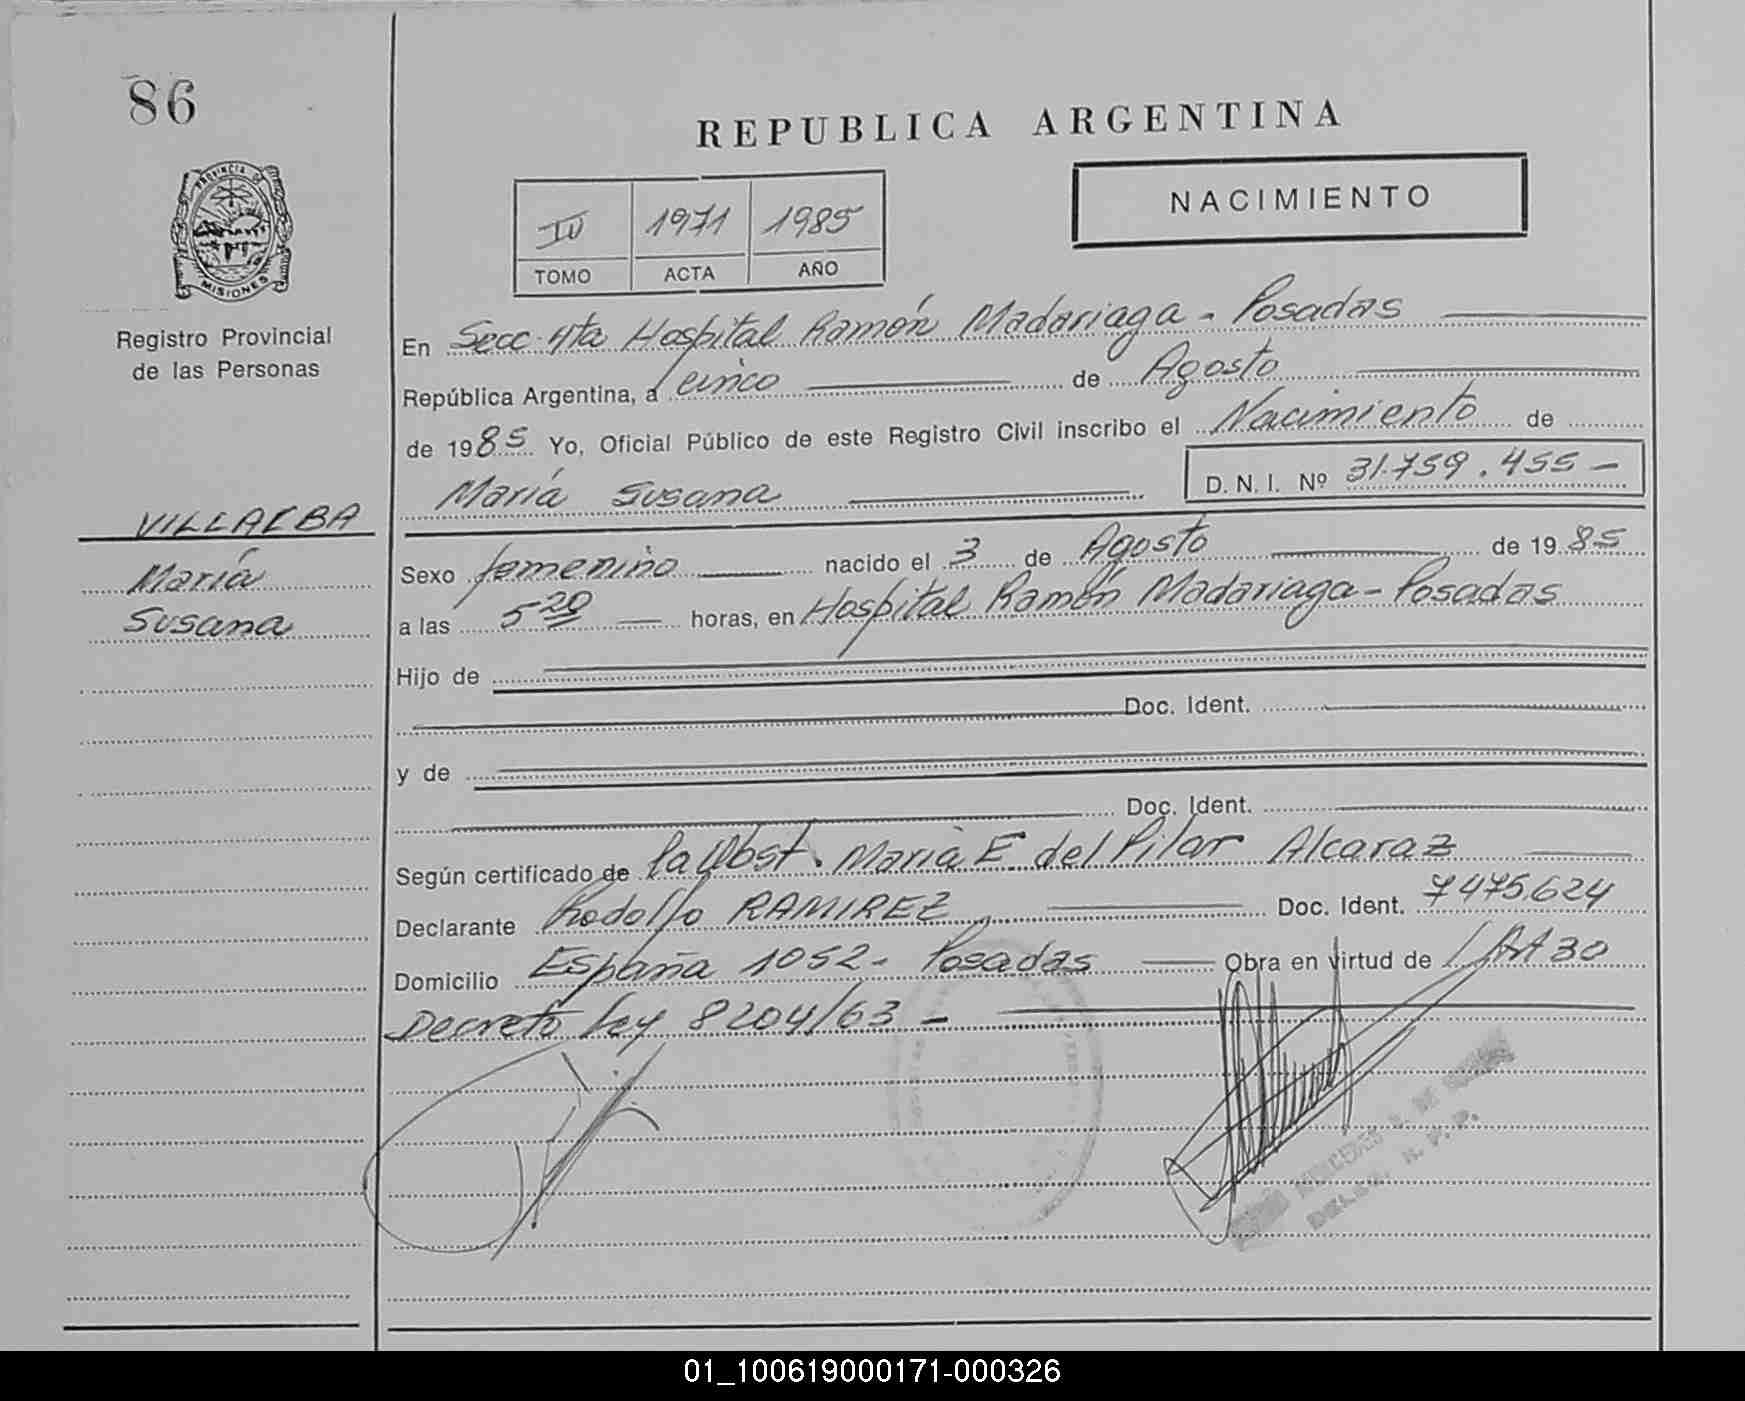 86
REPUBLICA ARGENTINA
NACIMIENTO
IV 1971 1985
TOMO ACTA AÑO
PROVINCIA DE
MISIONES
Registro Provincial
de las Personas
En Secc. 4ta Hospital Ramón Madariaga - Posadas
República Argentina, a cinco de Agosto
de 1985 Yo, Oficial Público de este Registro Civil inscribo el Nacimiento de
María Susana D. N. I. Nº 31.759.455 -
VILLALBA
María
Susana
Sexo femenino nacido el 3 de Agosto de 1985
a las 5 20 horas, en Hospital Ramón Madariaga - Posadas
Hijo de
Doc. Ident.
y de
Doc. Ident.
Según certificado de la Obst. María E. del Pilar Alcaraz
Declarante Rodolfo RAMIREZ Doc. Ident. 7475.624
Domicilio España 1052 - Posadas Obra en virtud de Art 30
Decreto Ley 8204/63 -
01_100619000171-000326